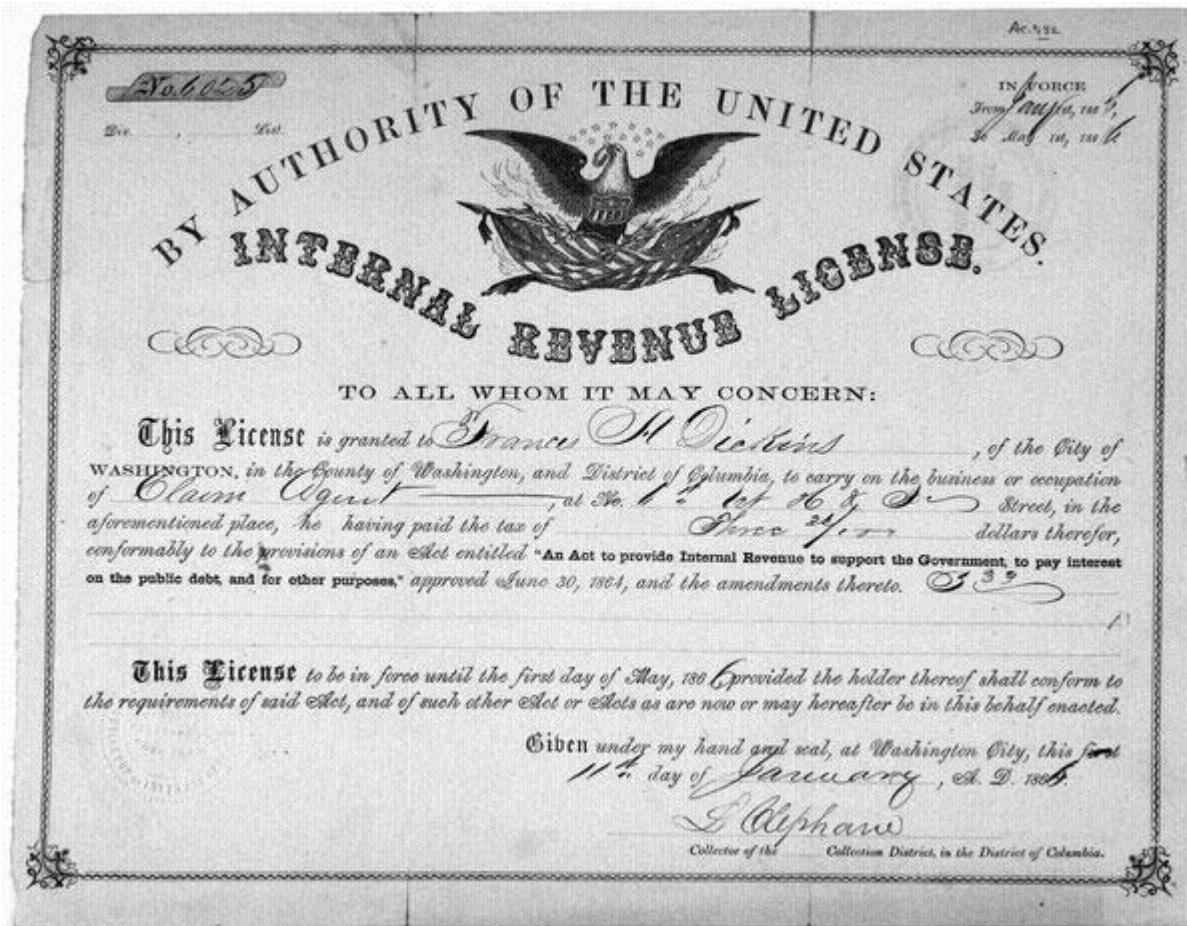 No. 6,025
IN FORCE
Div. , Dist.
From Jany 1st, 186
To May 1st, 1866
BY AUTHORITY OF THE UNITED STATES.
INTERNAL REVENUE LICENSE.
TO ALL WHOM IT MAY CONCERN:
This License is granted to Frances H Dickins , of the City of
WASHINGTON, in the County of Washington, and District of Columbia, to carry on the business or occupation
of Claim Agent , at No. Street, in the
aforementioned place, he having paid the tax of Three dollars therefor,
conformably to the provisions of an Act entitled "An Act to provide Internal Revenue to support the Government, to pay interest
on the public debt, and for other purposes," approved June 30, 1864, and the amendments thereto.
This License to be in force until the first day of May, 1866 provided the holder thereof shall conform to
the requirements of said Act, and of such other Act or Acts as are now or may hereafter be in this behalf enacted.
Given under my hand and seal, at Washington City, this first
11th day of January , A. D. 1866.
L Clephane
Collector of the Collection District, in the District of Columbia.